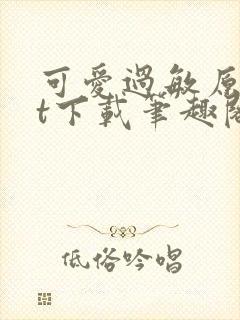 可愛過敏原
t下載筆趣閣
低俗吟唱